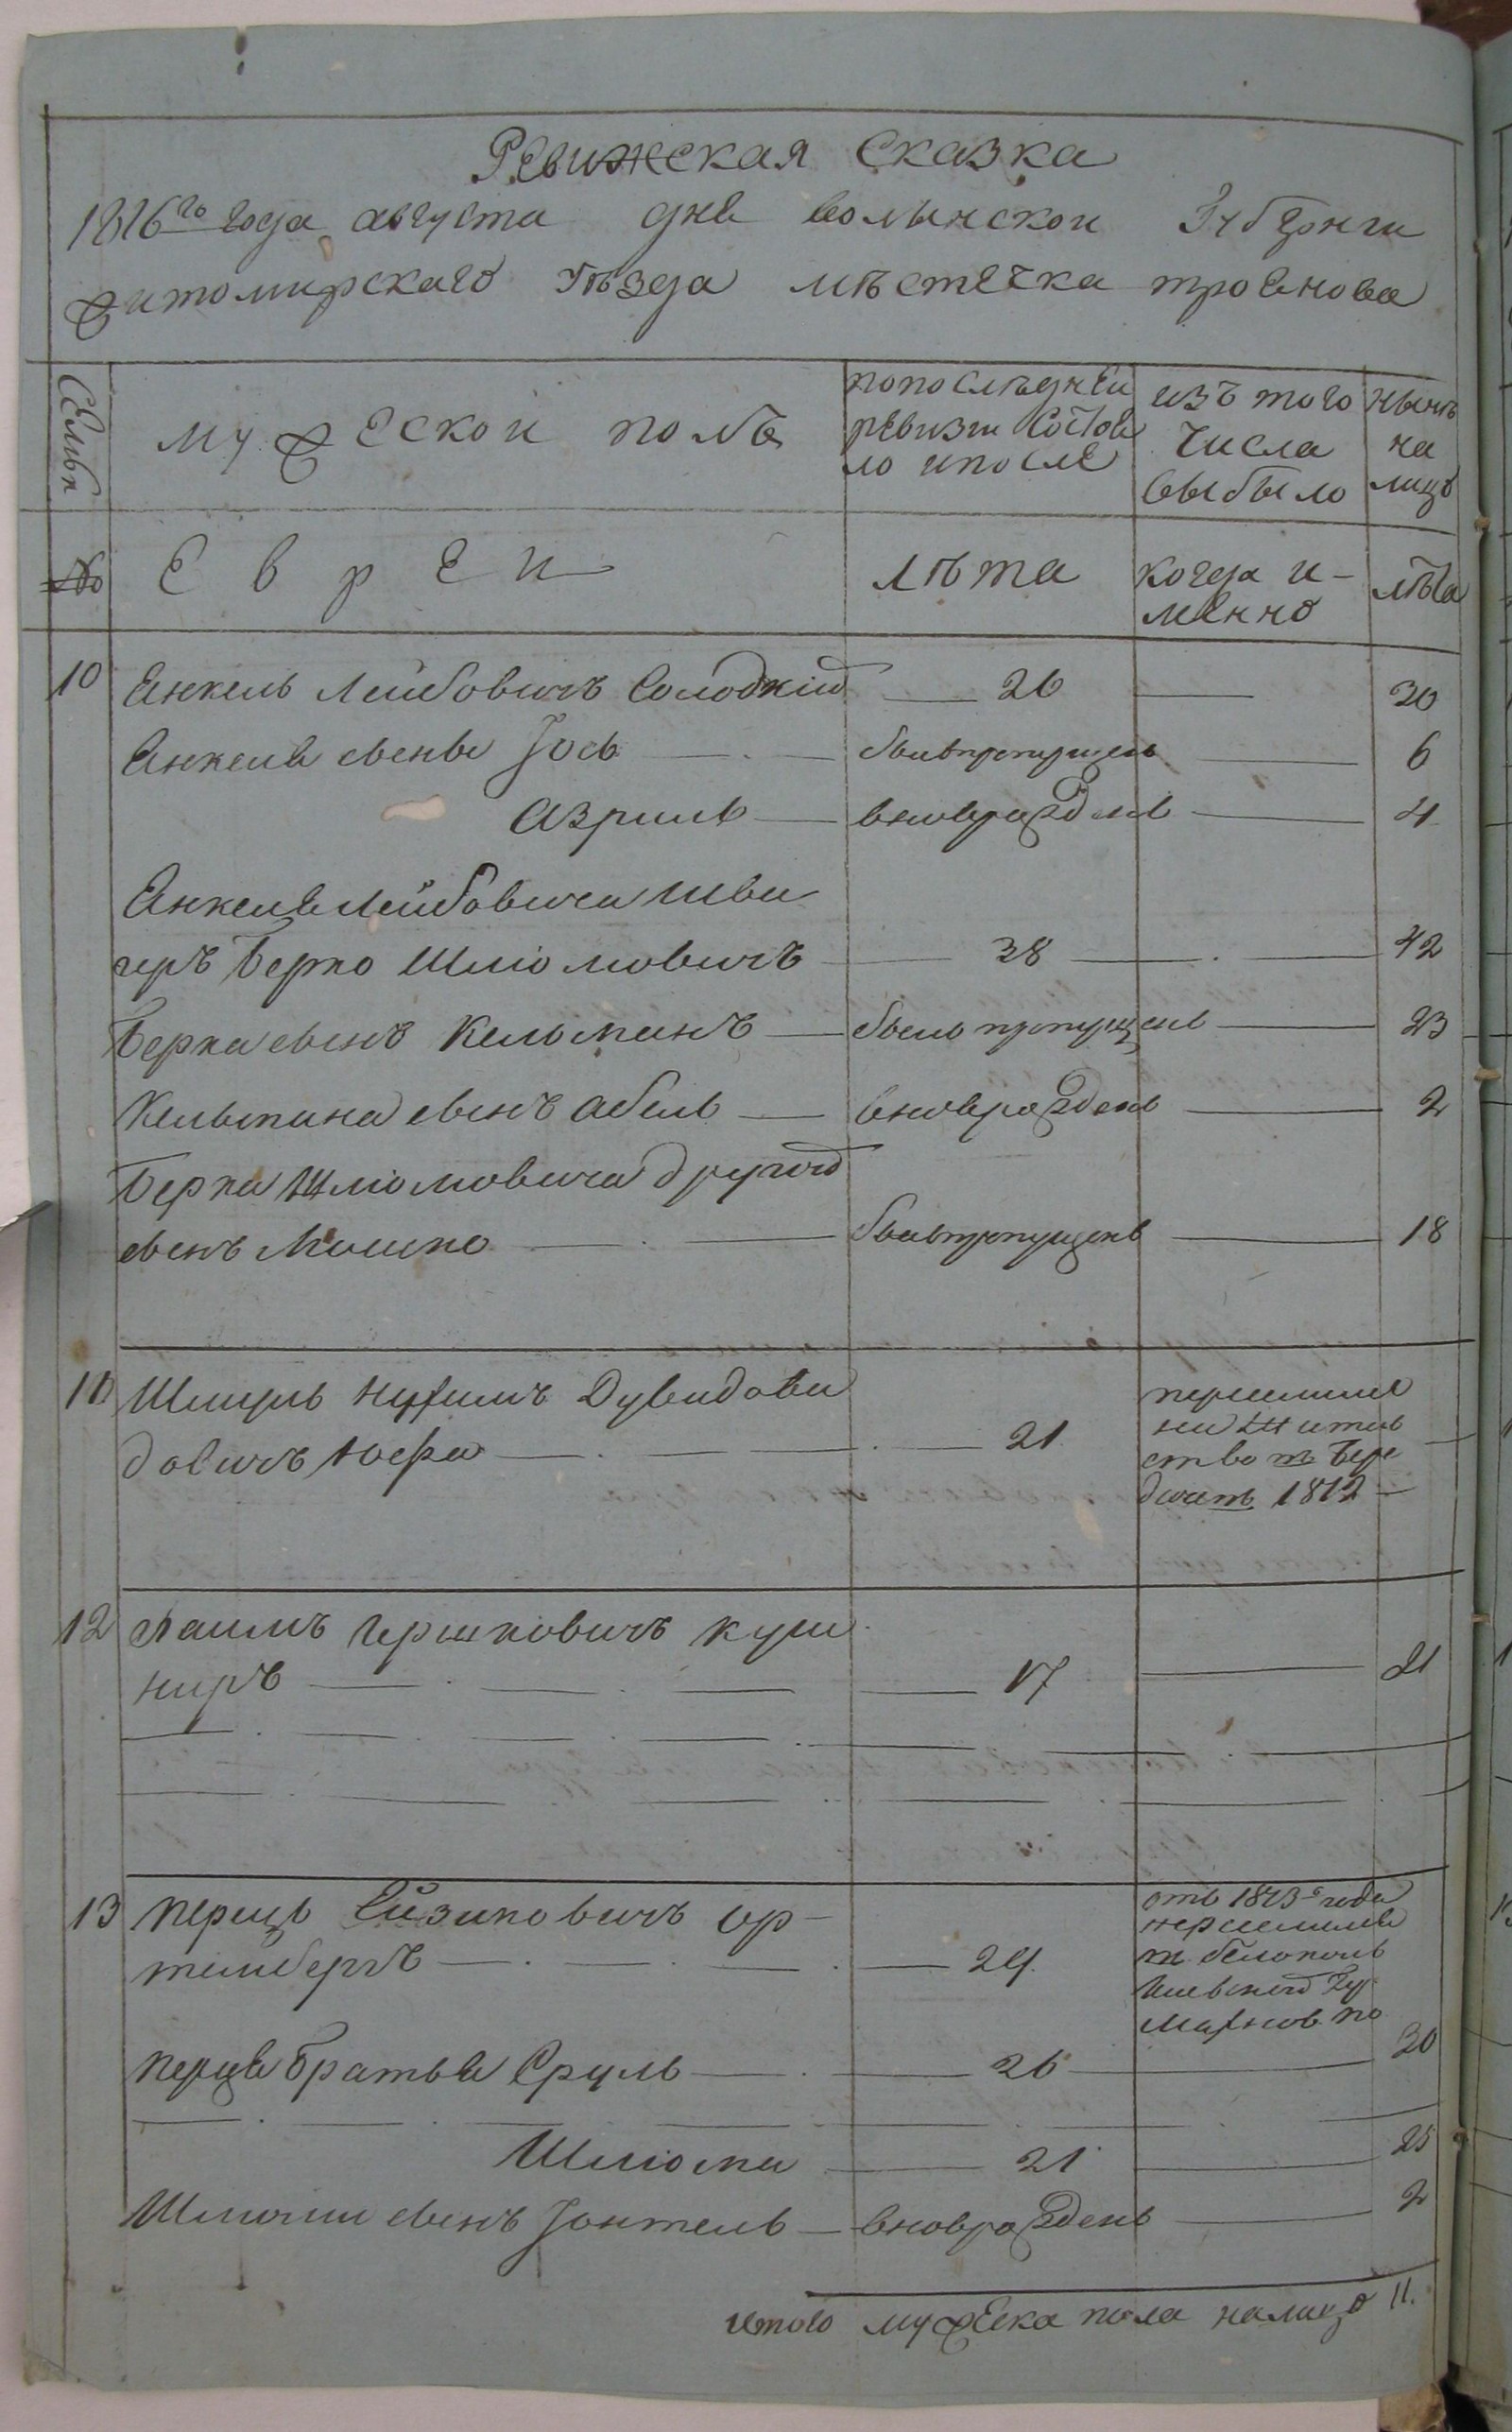 Ревижская сказка
1816го года августа дня волынскои Губернги
житомирскаго уѣзда мѣстечка троянова
Семьи
мужескои полъ
попослѣднеи
ревизги состоя
ло ипосле
изъ того
числа
выбыло
нынѣ
на
лицо
№
Евреи
лѣта
когда и-
менно
лѣта
10 Енкель Лейбовичъ Солодкій 26 30
Енкеля сынья Іось былъ пропущенъ 6
Азриль вновь рожденъ 4
Енкеля Лейбовича шва
геръ Берко Шліомовичъ 38 42
Берка сынъ Кельманъ былъ пропущенъ 23
Кельмана сынъ Абель вновь рожденъ 2
Берка Шліомовича другой
сынъ Мошко былъ пропущенъ 18
11 Шмуль Нухимъ Дувидови
довичъ Юфа 21
переишелъ
на жител
ство въ Бер
1812
12 Хаимъ Гершковичъ куш
ниръ 17 21
13 перецъ Ейзиковичъ ор-
тенбергъ 29
отъ 1813го года
Киевской гу
Перца братья Сруль 26 30
Шліома 21 25
Шліомы сынъ Іонтель вновь рожденъ 2
итого мужеска пола налицо 11.